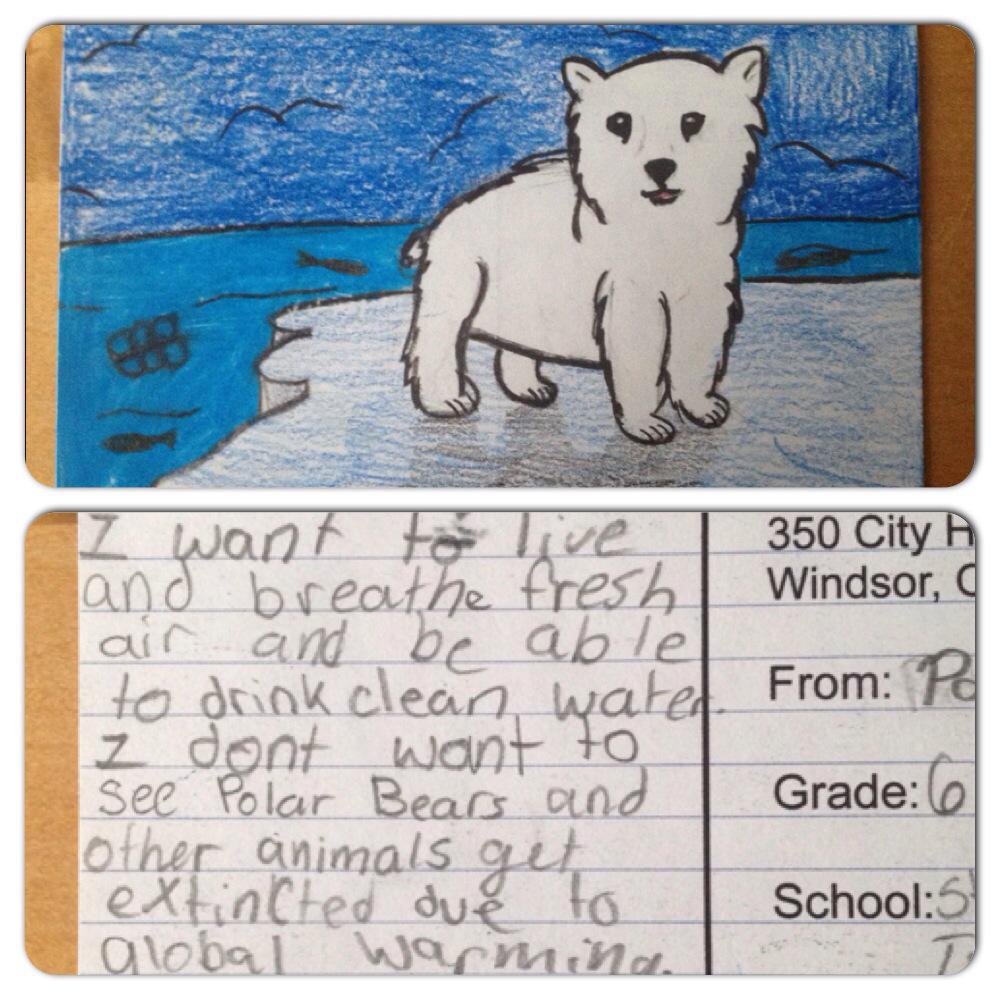 I want to live
and breathe fresh
air and be able
to drink clean water.
I dont want to
see Polar Bears and
other animals get
extincted due to
global warming.
350 City H
Windsor, O
From: Po
Grade: 6
School: St